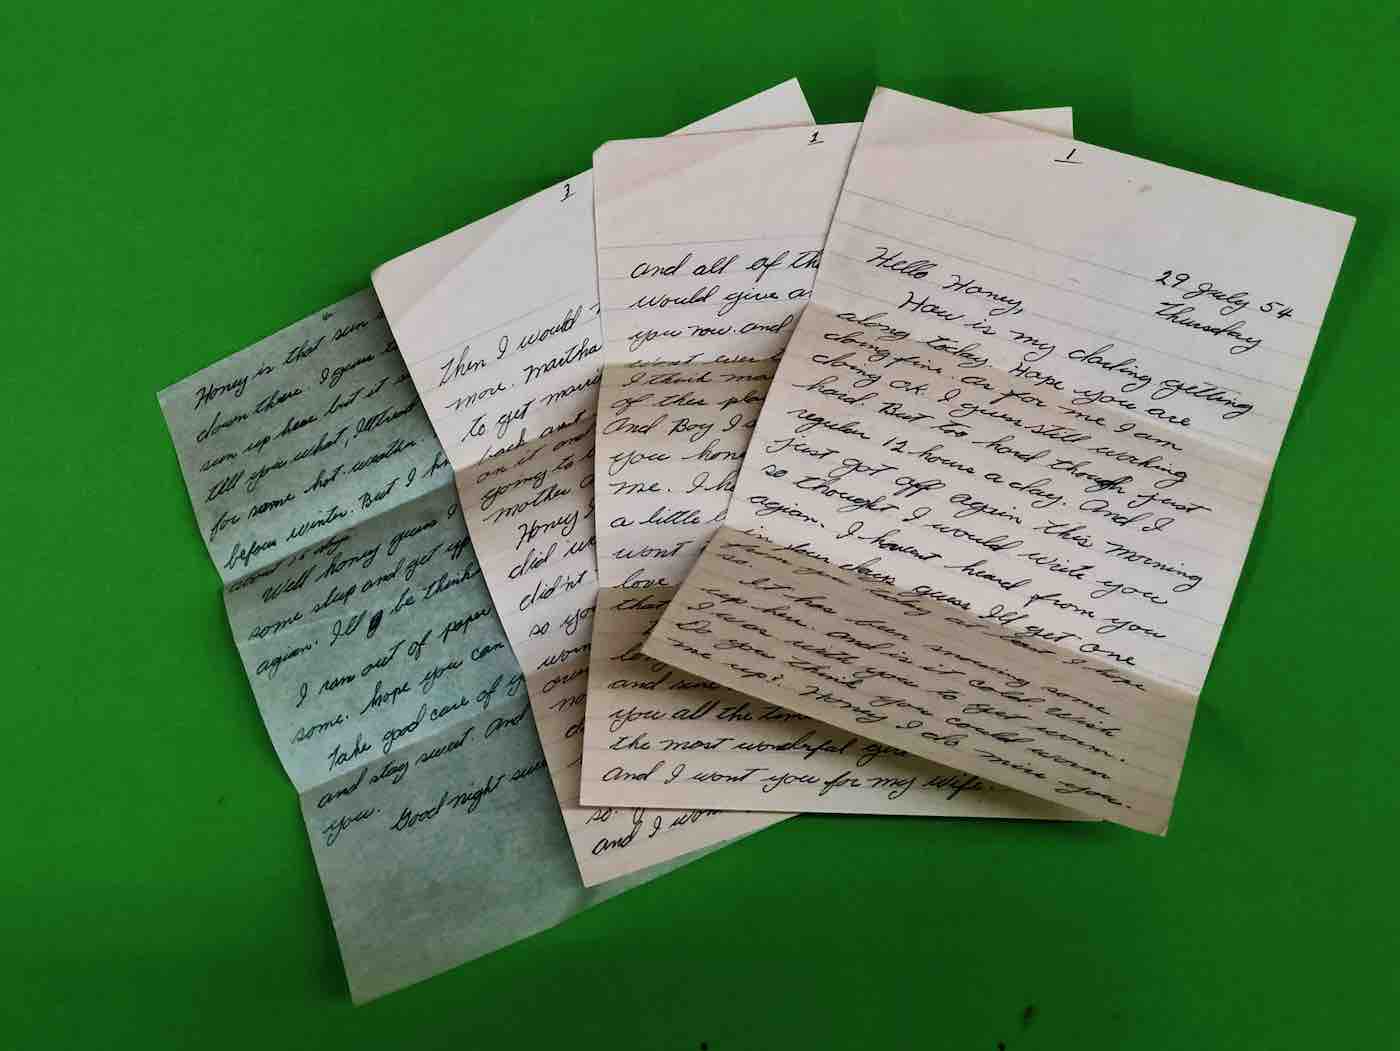 1
29 July 54
Thursday
Hello Honey,
How is my darling getting
along today. Hope you are
doing fine. as for me I am
doing ok. I guess still working
hard. But too hard though just
regular 12 hours a day. And I
just got off again this morning
so thought I would write you
again. I havent heard from you
in four days guess I'll get one
from you today at least I hope
so.
It has been snowing some
up here and is it cold. Wish
I was with you to get warm.
Do you think you could warm
me up?. Honey I do miss you.
and all of th
would give a
you now. and
wont ever
I think ma
of this pla
And Boy I
you hone
me. I ho
a little
wont
love
that
and
you all the time
the most wonderful
and I want you for my wife.
3
Then I would
more. Martha
to get marri
back and
on it and
going to
mother
Honey I
did w
didn't
so you
so. I
and I wo
Honey is that sun
down there. I guess
sun up here but it
tell you what, I
for some hot weather.
before winter. But I
Well honey guess I
some sleep and get up
again. I'll be think
I ran out of paper
some. hope you can
Take good care of y
and stay sweet. And
you.
Good night swe